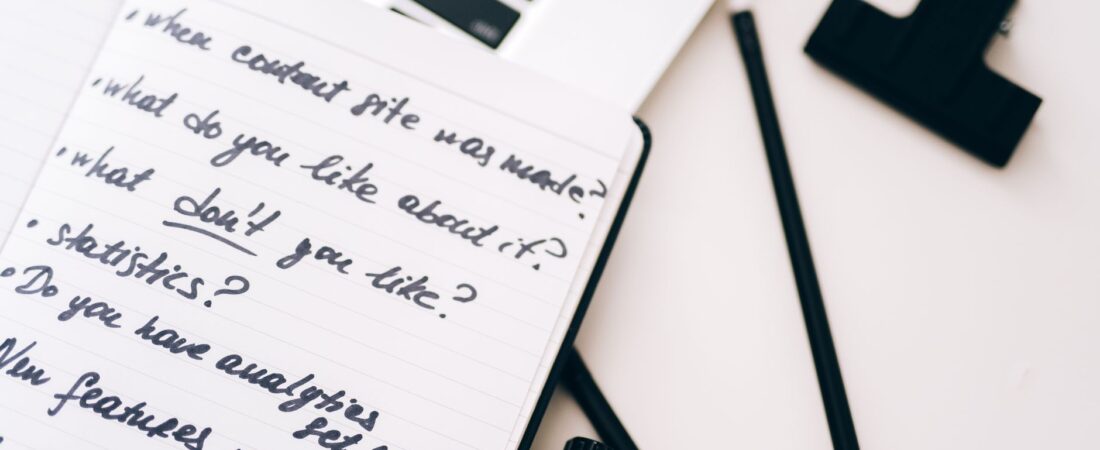 • when content site was made?
• what do you like about it?
• what don't you like?
• statistics?
• Do you have analytics
set
New features